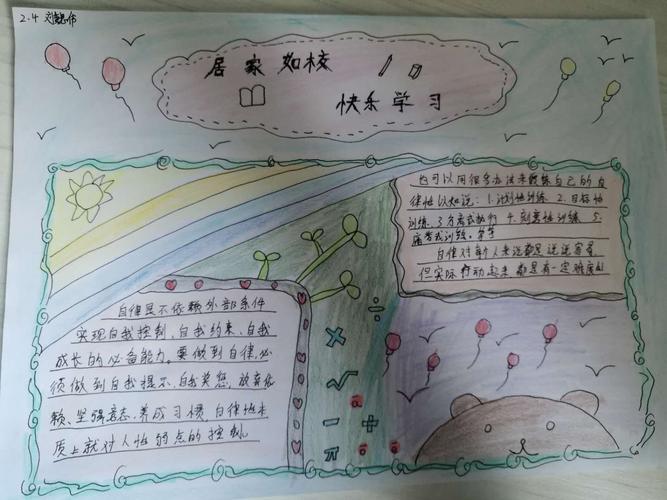 2.4 刘懿伟
居家如校
快乐学习
也可以用很多办法来锻炼自己的自
律性。比如说：1.计划性训练. 2.目标性
训练. 3.方式执行 4.刻意性训练 5.
痛苦式训练。等等
自律对每个人来说都是说说容易，
但实际行动起来都是有一定难度的
自律是不依赖外部条件
实现自我控制、自我约束、自我
成长的必备能力。要做到自律,必
须做到自我提示、自我奖惩、放弃依
赖、坚强意志、养成习惯。自律性本
质上就对人性弱点的控制。
÷
×
√
- +
π a
a